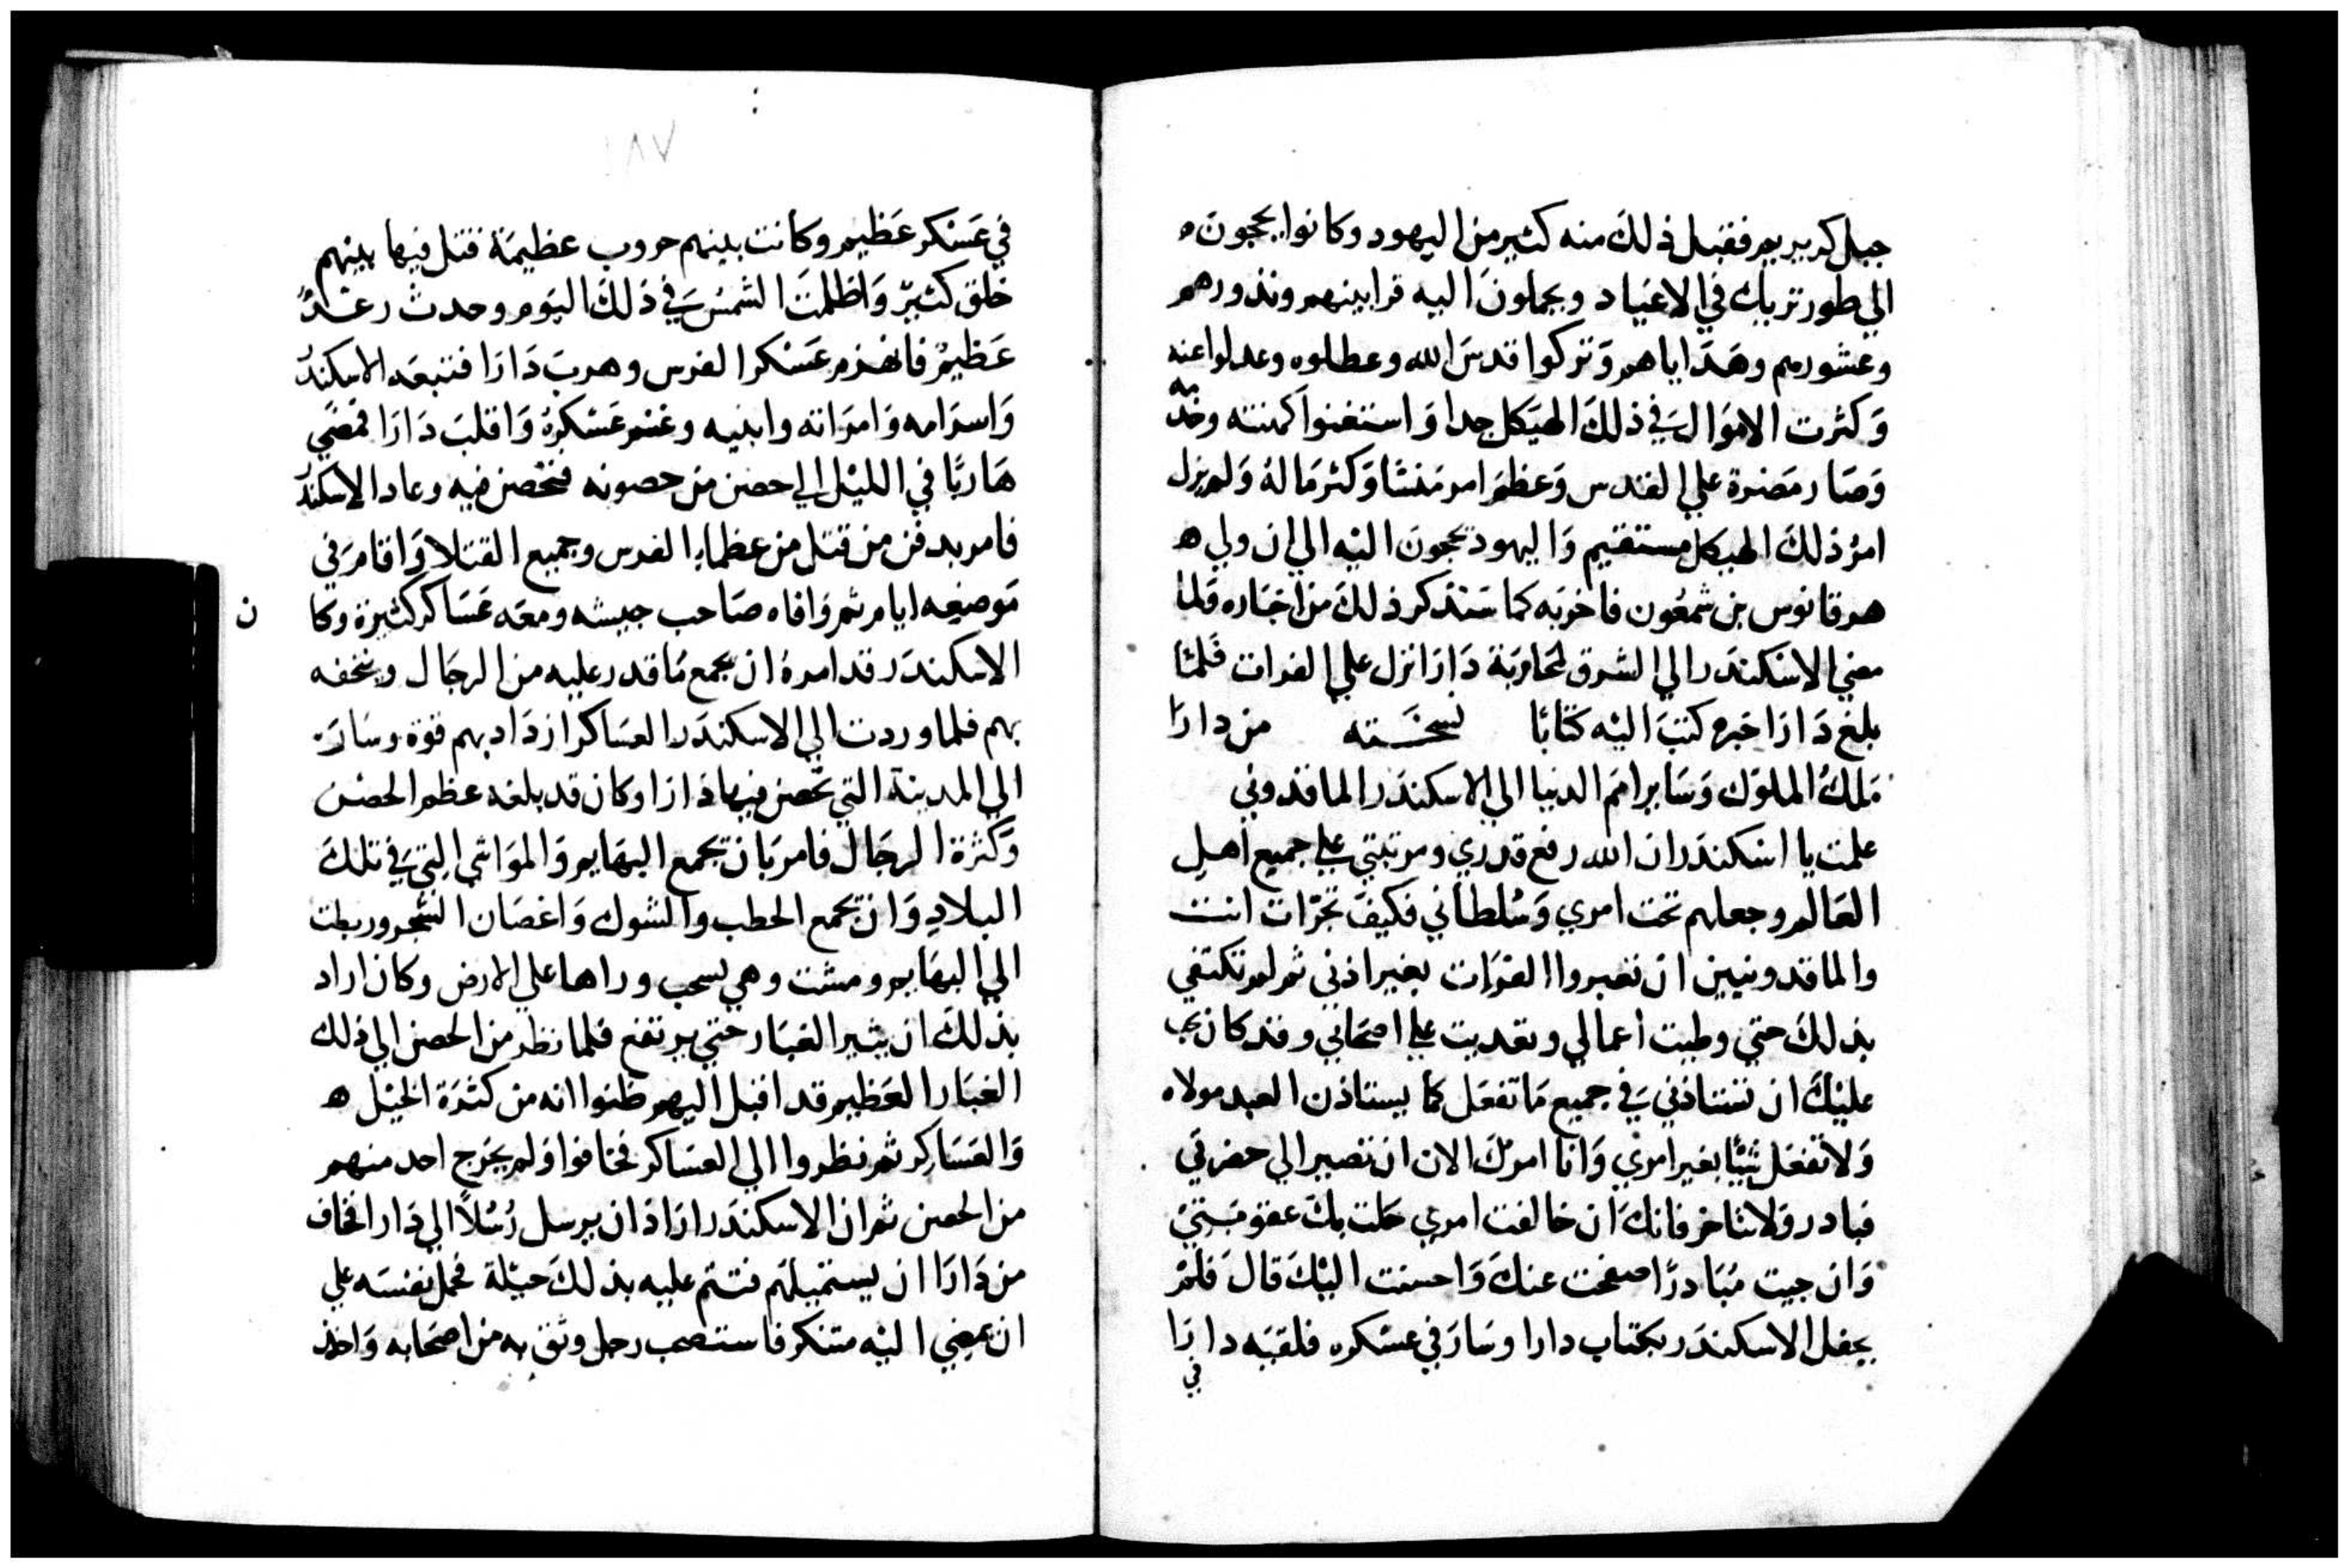 جبل كريريم فقبل ذلك منه كثير من اليهود وكانوا يحجون ه
الي طور تريك في الاعياد ويحملون اليه قرابينهم ونذورهم
وعشورهم وهداياهم وتركوا قدس الله وعطلوه وعدلوا عنه
وكثرت الاموال في ذلك الهيكل جدا واستغنوا كهنته وخدمه
وصار مضرة علي القدس وعظم امر منشا وكثر ماله ولم يزل
امر ذلك الهيكل مستقيم واليهود تحجون اليه الي ان ولي ه
هرقانوس بن شمعون فاخربه كما سنذكر ذلك من اخباره فلما
مضي الاسكندر الي الشرق لمحاربة دارا نزل علي الفرات فلما
بلغ دارا خبره كتب اليه كتابا نسخته من دارا
ملك الملوك وساير امم الدنيا الي الاسكندر الماقذوني
علمت يا اسكندر ان الله رفع قدري ومرتبتي علي جميع اهل
العالم وجعلهم تحت امري وسلطاني فكيف تجرات انت
والماقدونيين ان تعبروا الفرات بغير اذني ثم لم تكتفي
بذلك حتي وطيت اعمالي وتعديت علي اصحابي وقد كان يجب
عليك ان تستاذني في جميع ما تفعل كما يستاذن العبد مولاه
ولا تفعل شيًا بغير امري وانا امرك الان ان تصير الي حضرتي
فبادر ولا تتاخر فانك ان خالفت امري حلت بك عقوبتي
وان جيت مبادرًا صفحت عنك واحسنت اليك قال فلم
يحفل الاسكندر بكتاب دارا وسار في عسكره فلقيه دارا
في
١٨٧
في عسكر عظيم وكانت بينهم حروب عظيمة قتل فيها بينهم
خلق كثير واظلمت الشمس في ذلك اليوم وحدث رعدٌ
عظيم فانهزم عسكر الفرس وهرب دارا فتبعه الاسكندر
واسر امه وامراته وابنيه وغنم عسكره وافلت دارا فمضي
هاربًا في الليل الي حصن من حصونه فتحصن فيه وعاد الاسكندر
فامر بدفن من قتل من عظماء الفرس وجميع القتلا واقام في
موضعه ايام ثم وافاه صاحب جيشه ومعه عساكر كثيرة وكان
الاسكندر قد امره ان يجمع ما قدر عليه من الرجال ويتحفه
بهم فلما وردت الي الاسكندر العساكر ازداد بهم قوة وسار
الي المدينة التي تحصن فيها دارا وكان قد بلغه عظم الحصن
وكثرة الرجال فامر بان تجمع البهايم والمواشي التي في تلك
البلاد وان تجمع الحطب والشوك واغصان الشجر وربطت
الي البهايم ومشت وهي تسحب وراها علي الارض وكان اراد
بذلك ان يثير الغبار حتي يرتفع فلما نظر من الحصن الي ذلك
الغبار العظيم قد اقبل اليهم ظنوا انه من كثرة الخيل ه
والعساكر ثم نظروا الي العساكر فخافوا ولم يخرج احد منهم
من الحصن ثم ان الاسكندر اراد ان يرسل رُسُلًا الي دارا فخاف
من دارا ان يستميلهم فتتم عليه بذلك حيلة فحمل نفسه علي
ان يمضي اليه متنكر فاستصحب رجل وثق به من اصحابه واخذ